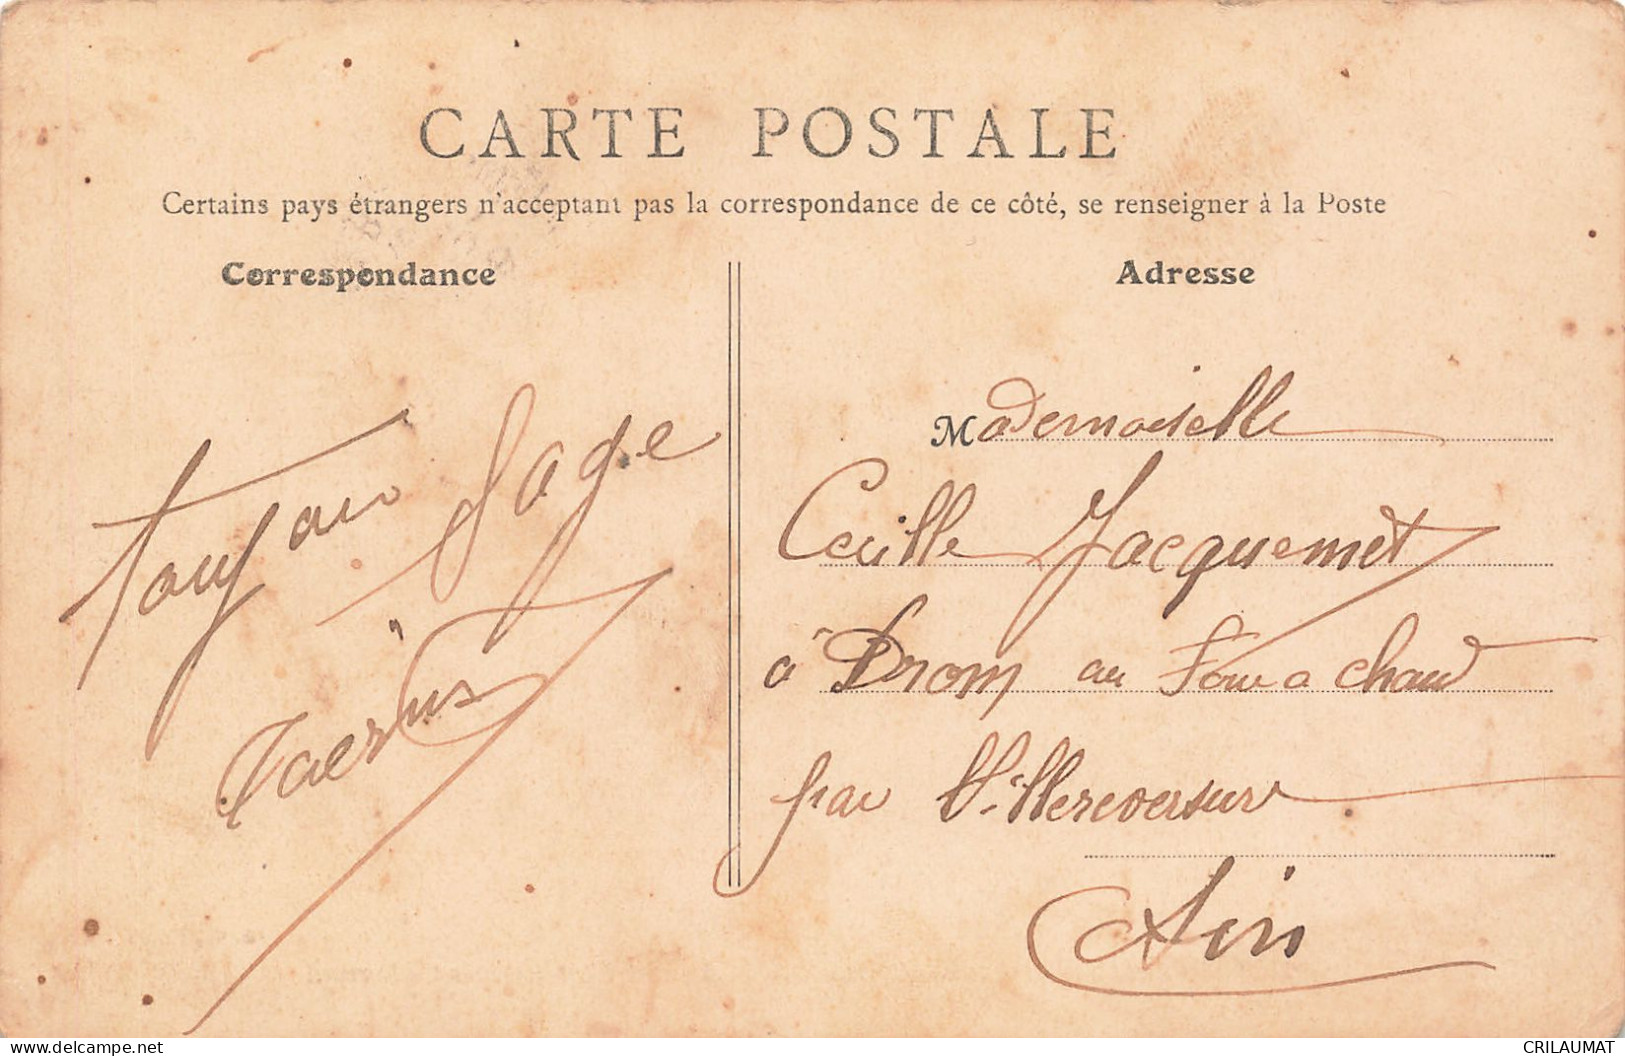 CARTE POSTALE
Certains pays étrangers n'acceptant pas la correspondance de ce côté, se renseigner à la Poste
Correspondance
Adresse
toujour Sage
Mademoiselle
Cecille Jacquemet
a Drom au Four a chaud
par Villereversure
Ain
www.delcampe.net
CRILAUMAT